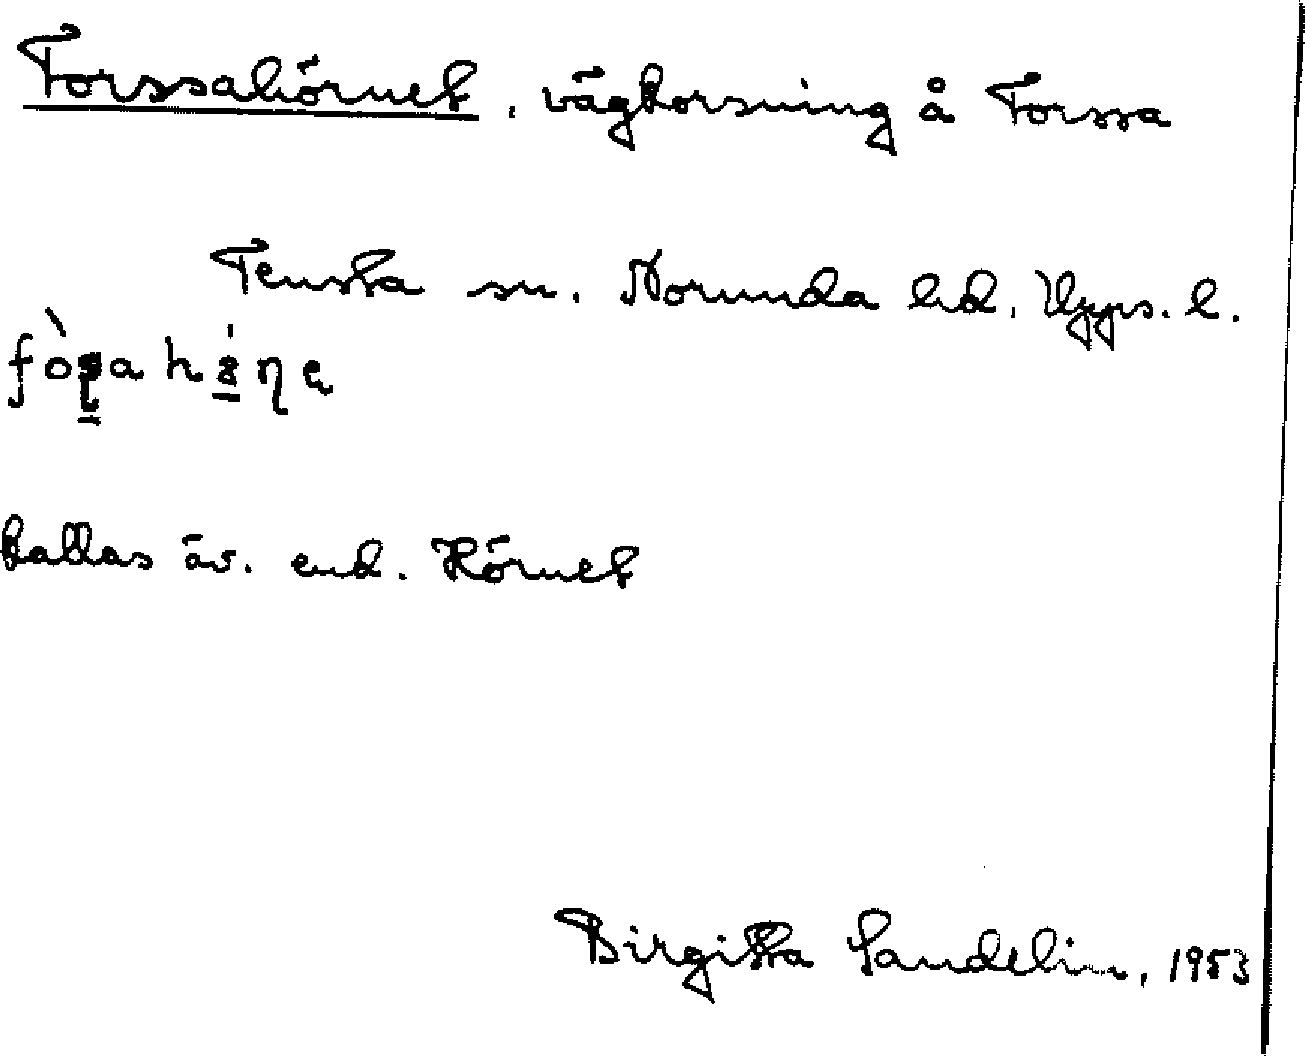 Forssahörnet, vägkorsning å Forssa
Tensta sn. Norunda hd. Upps. l.
Kallas äv. end. Hörnet
Birgitta Sandelin, 1953